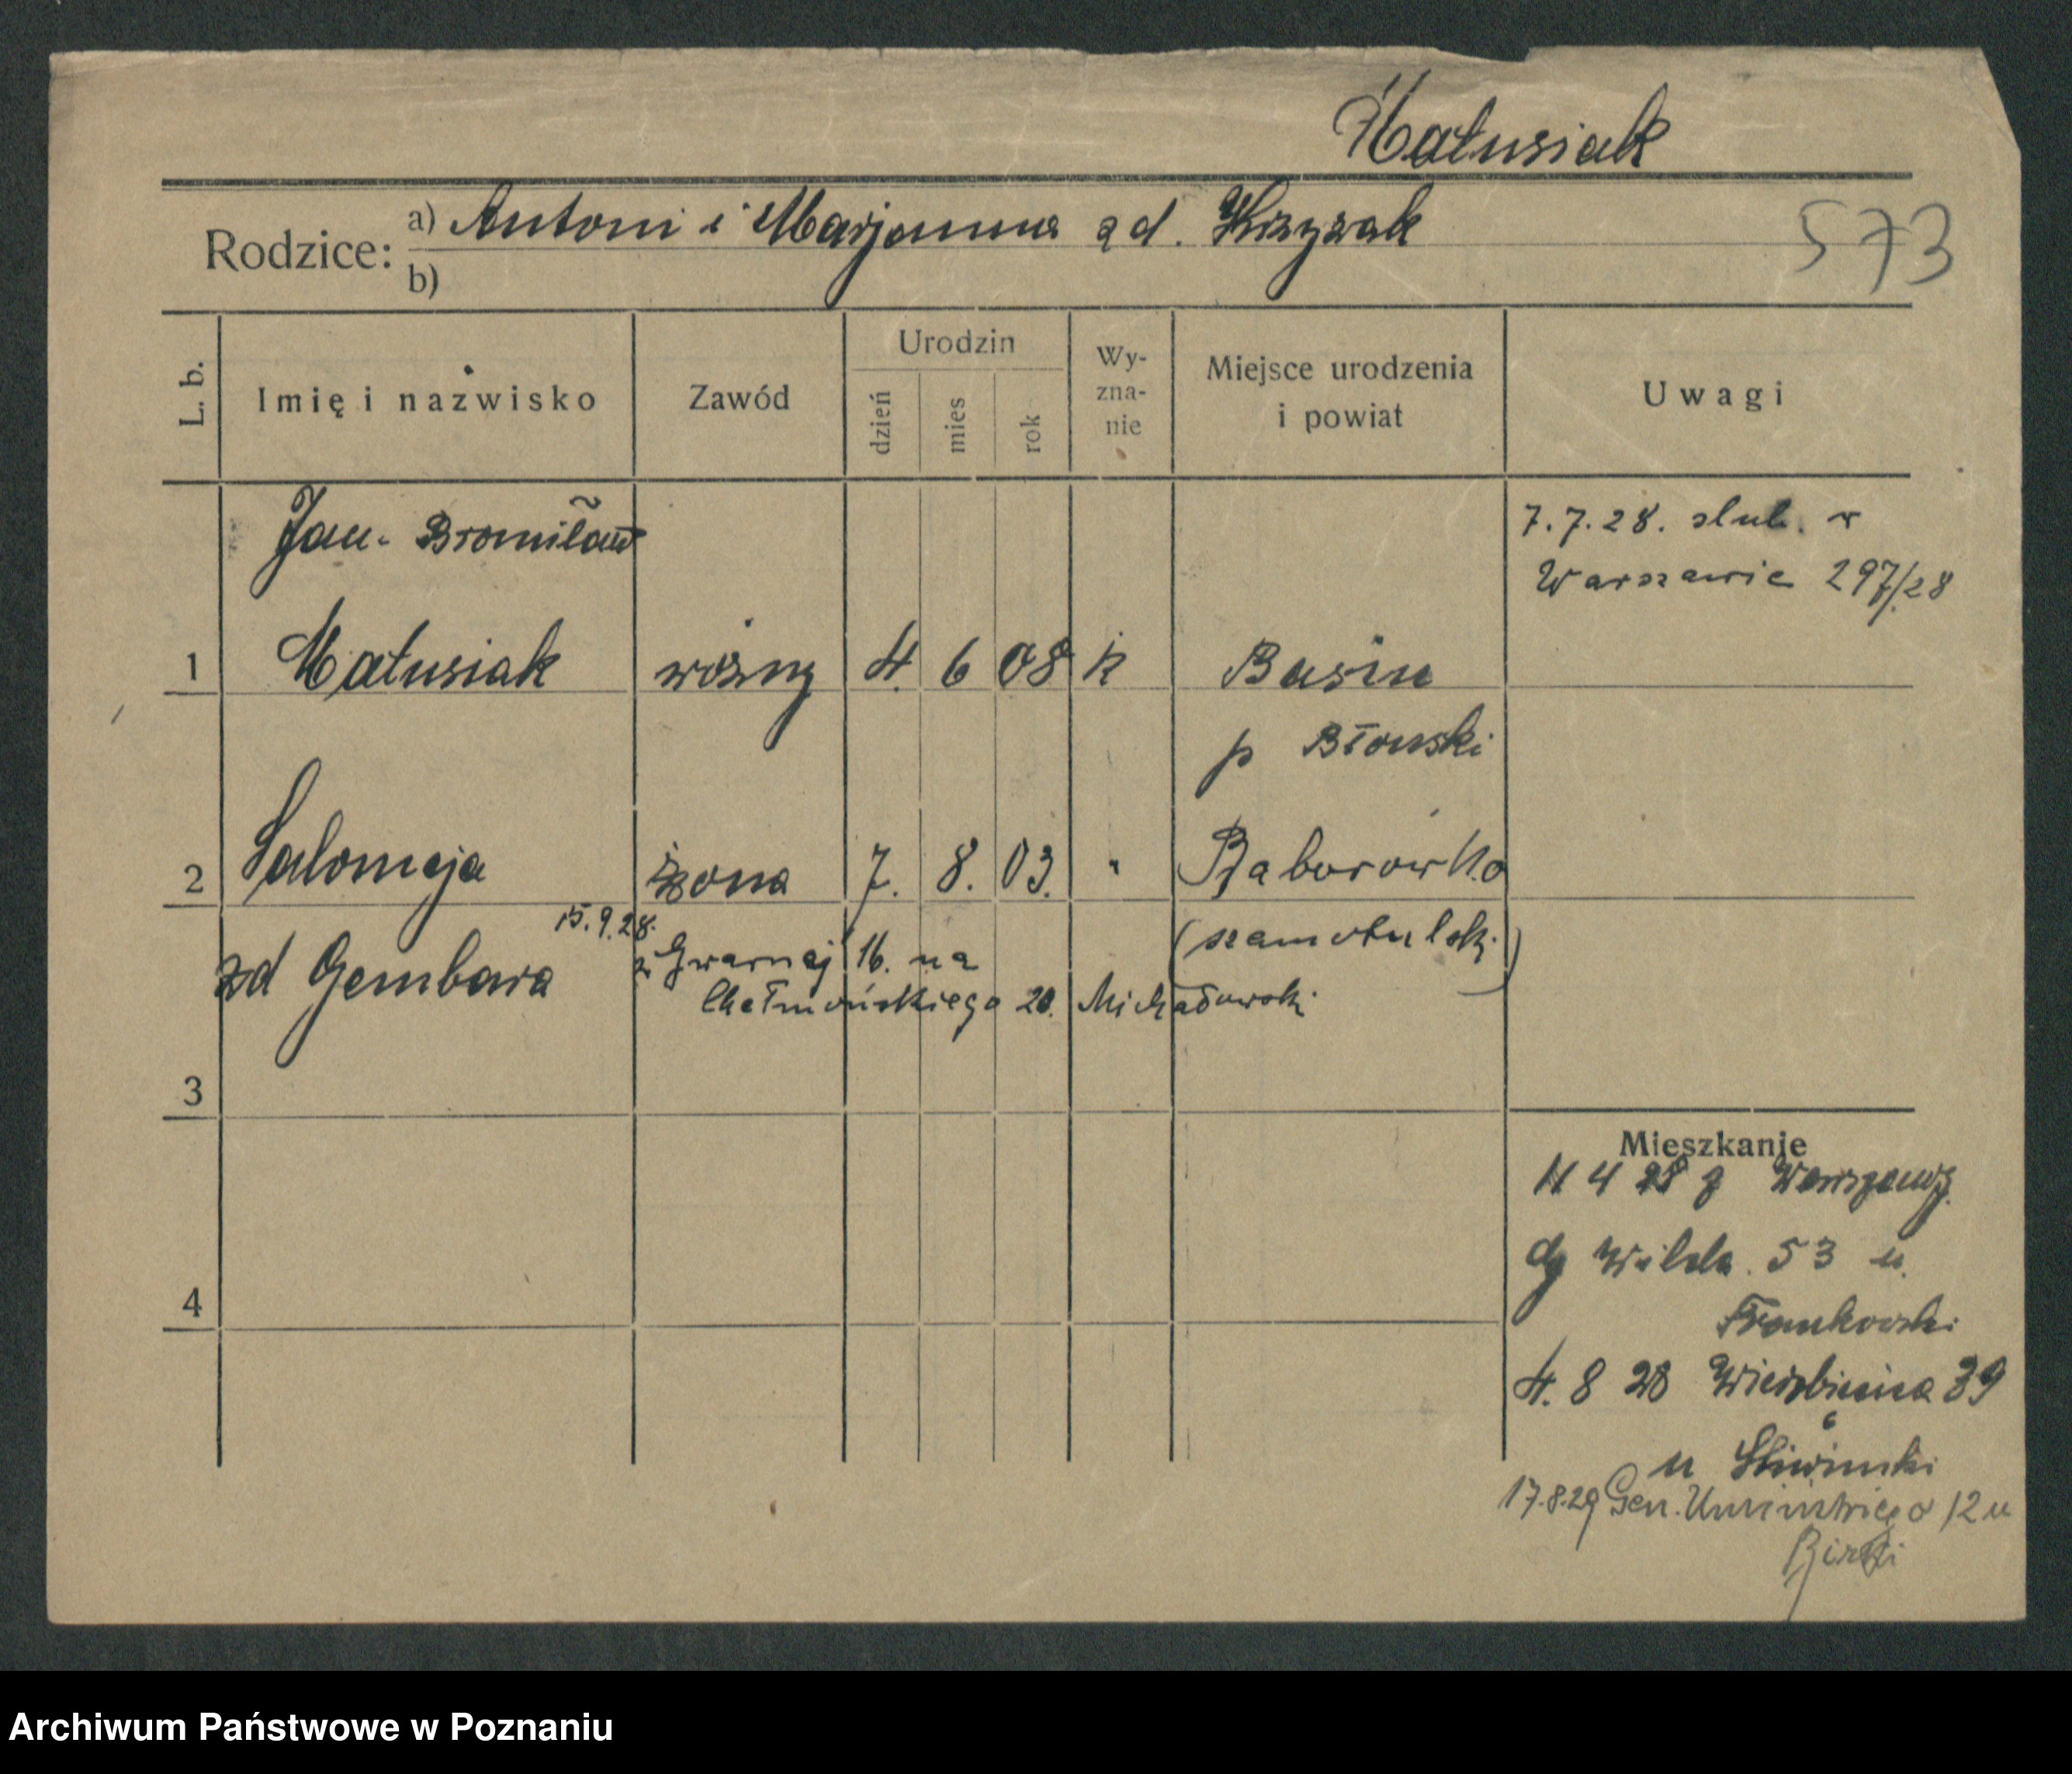 Matusiak
Rodzice: a) Antoni i Marjanna zd. Krzyzak
b)
573
L. b.
Imię i nazwisko
Zawód
Urodzin
dzień
mies
rok
Wy-
zna-
nie
Miejsce urodzenia
i powiat
Uwagi
Jan-Bronisław
7.7.28. slub. w
Warszawie 297/28
1 Matusiak woźny 4. 6 08 k
p Błonski
2 Salomeja żona 7. 8. 03. " Baborówko
15.9.28.
zd Gembara
z Gwarnej 16. na
(szamotulski)
Chełmońskiego 20. Michałowski
3
4
Mieszkanie
11 4 28 z Warszawy
dg Wilda 53 u.
Frankowski
4. 8 28 Wierzbięcice 39
u Śliwinski
17.8.29 Gen. Umińskiego 12 u
Archiwum Państwowe w Poznaniu